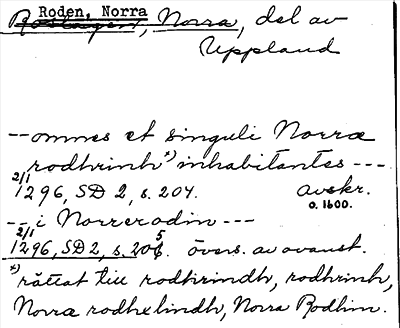 Roden, Norra
Roslagen, Norra, del av
Uppland
-- omnes et singuli Norræ
rodhrinh *) inhabitantes ---
2/1
1296, SD 2, s. 204. avskr.
o. 1600.
-- i Norrerodin ---
2/1
1296, SD 2, s. 205. övers. av ovanst.
*) rättat till rodhrindh, rodhrinh,
Norra rodhelindh, Norra Rodhin.